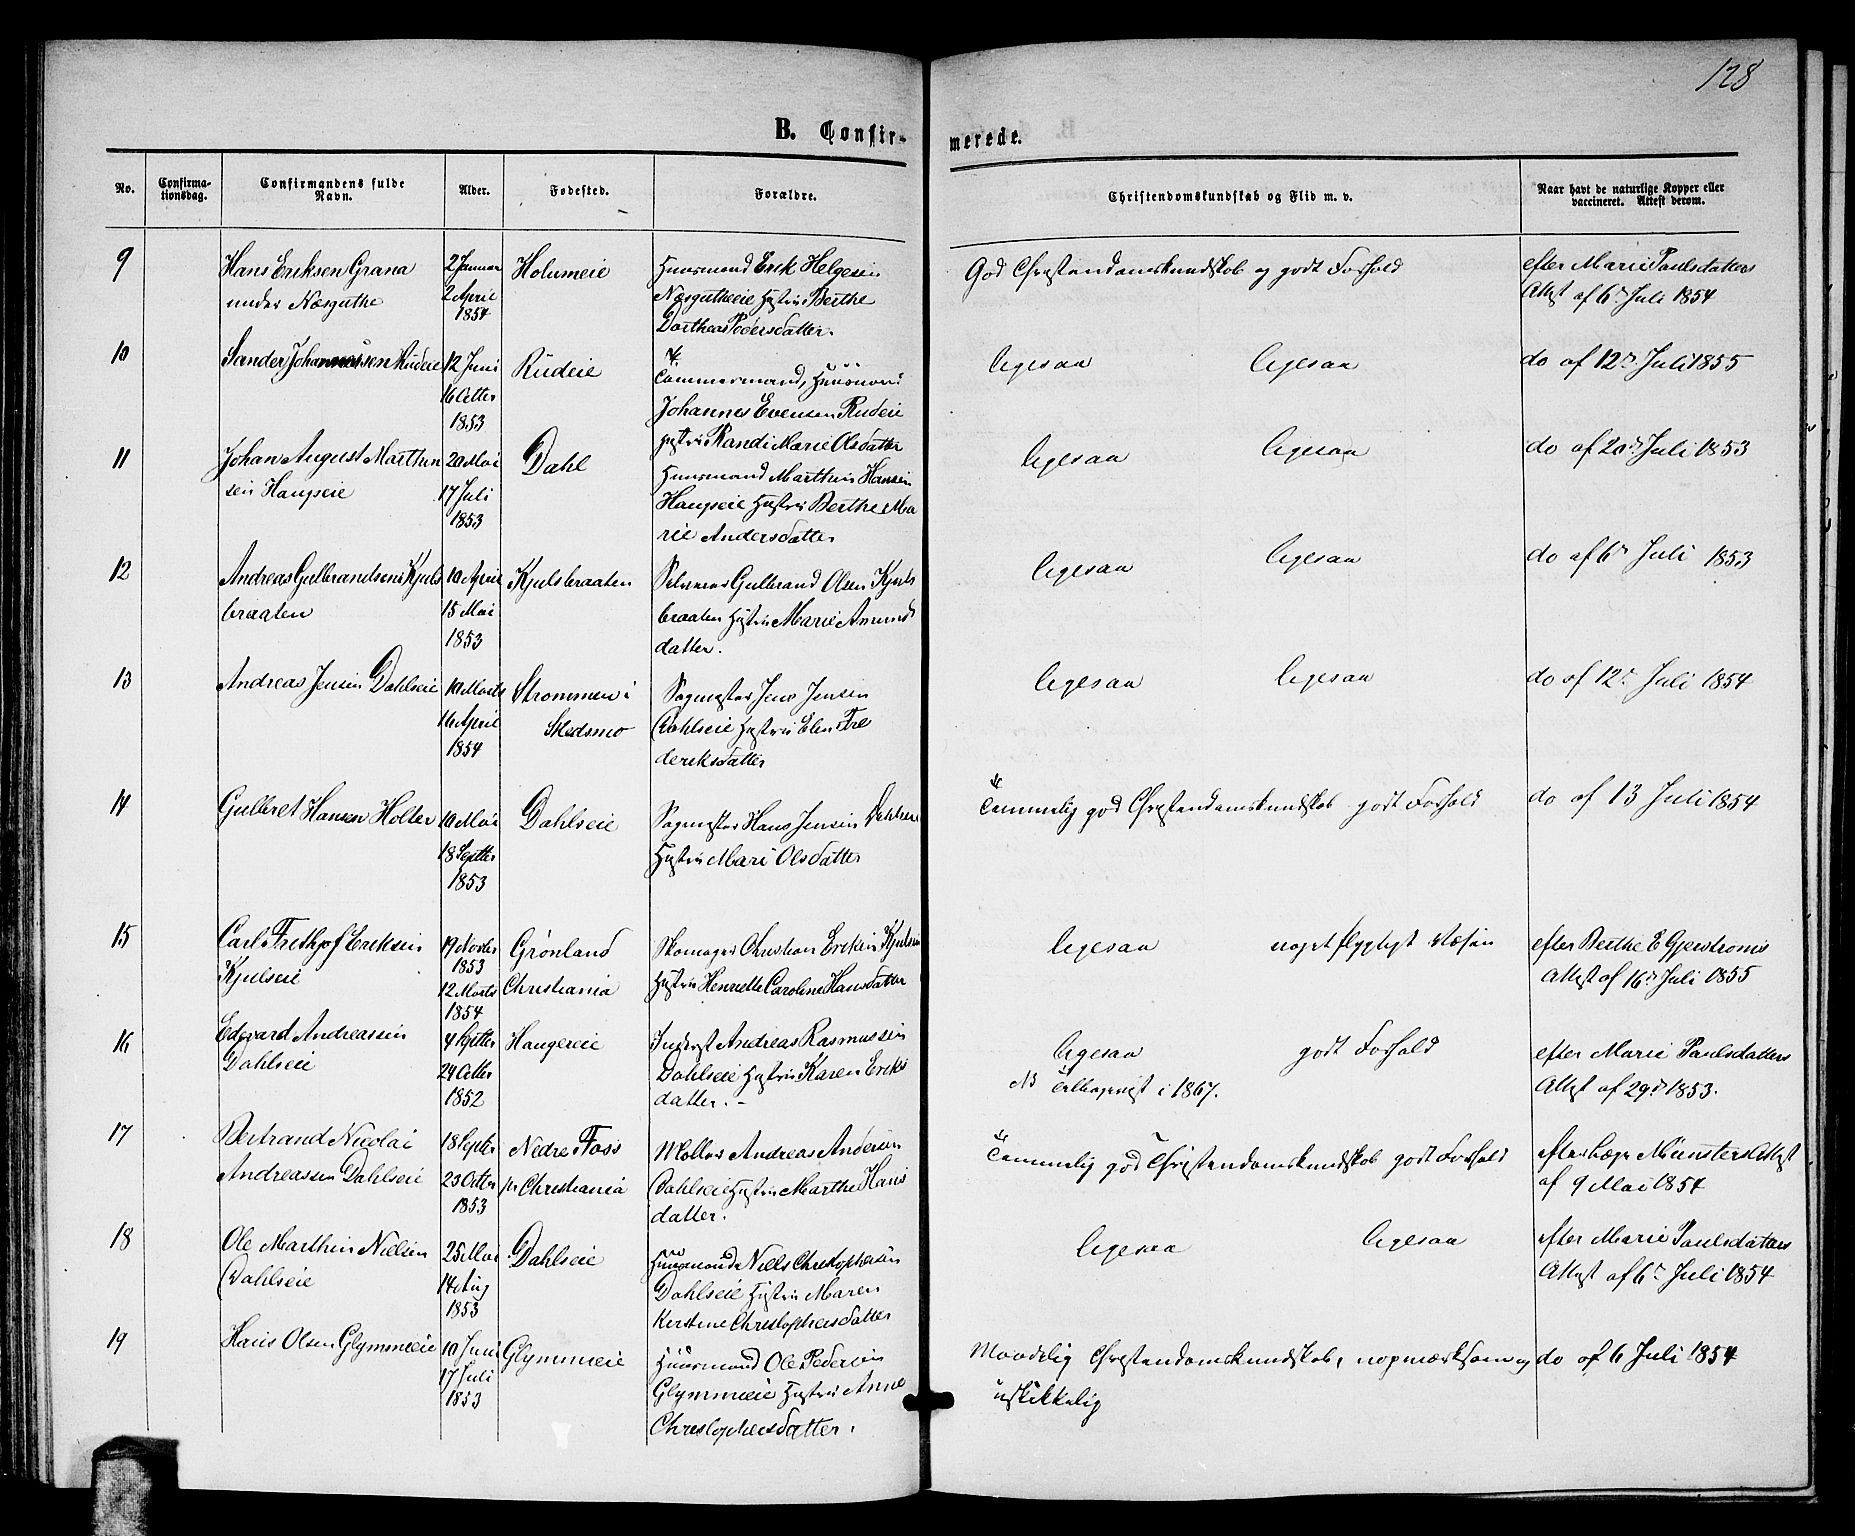 128
B. Confir-
merede.
No.
Confirma-
tionsdag.
Confirmandens fulde
Navn.
Alder.
Fødested.
Forældre.
Christendomskundskab og Flid m. v.
Naar havt de naturlige Kopper eller
vaccineret. Attest derom.
9
Hans Eriksen Grana
under Næsguthe
2 Januar
2 April
1854
Holumeie
Huusmand Erik Helgesen
Næsgutheeie Hustru Berthe
Dorthea Pedersdatter.
God Christendomskundskab og godt Forhold
efter Marie Paulsdatters
Attest af 6te Juli 1854
10
Sander Johannessen Rudeie
12 Juni
16 Octbr
1853
Rudeie
Tømmermand, Huusmand
Johannes Evensen Rudeie
Hustru Randi Marie Olsdatter
ligesaa
ligesaa
do af 12te Juli 1855
11
Johan August Marthin
sen Haugseie
20 Mai
17 Juli
1853
Dahl
Huusmand Marthin Hansen
Haugseie Hustru Berthe Ma
rie Andersdatter
ligesaa
ligesaa
do af 20de Juli 1853
12
Andreas Gulbrandsen Kjuls
braaten
10 April
15 Mai
1853
Kjulsbraaten
Selveier Gulbrand Olsen Kjuls
braaten Hustru Marie Amunds
datter.
ligesaa
ligesaa
do af 6te Juli 1853
13
Andreas Jensen Dahlseie
10 Marts
16 April
1854
Strømmen i
Skedsmo
Sagmester Jens Jensen
Dahlseie Hustru Elen Fre
deriksdatter
ligesaa
ligesaa
do af 12te Juli 1854
14
Gulbret Hansen Holter
10 Mai
18 Septbr
1853
Dahlseie
Sagmester Hans Jensen
Hustru Mari Olsdatter
Temmelig god Christendomskundskab godt Forhold
do af 13 Juli 1854
15
Carl Frethjof Eriksen
Kjulseie
19 Novbr
1853
12 Marts
1854
Grønland
Christiania
Skomager Christian Eriksen Kjulseie
Hustru Henriette Caroline Hansdatter
ligesaa
noget flygtigt Væsen
efter Berthe E Gjerstroms
Attest af 16de Juli 1855
16
Edvard Andreassen
Dahlseie
4 Septbr
24 Octbr
1852
Haugereie
Inderst Andreas Rasmussen
Dahlseie Hustru Karen Eriks
datter. -
ligesaa
godt Forhold
NB Tilbagevist i 1867.
efter Marie Paulsdatters
Attest af 29de 1853.
17
Bertrand Nicolai
Andreassen Dahlseie
18 Septbr
23 Octbr
1853
Nedre Foss
pr Christiania
Møller Andreas Andersen
Dahlseie Hustru Marthe Hans
datter.
Temmelig god Christendomskundskab godt Forhold
efter Læge Münsters Attest
af 9 Mai 1854
18
Ole Marthin Nielsen
Dahlseie
25 Mai
14 Aug
1853
Dahlseie
Huusmand Niels Christophersen
Dahlseie Hustru Maren
Kirstine Christophersdatter
ligesaa
ligesaa
efter Marie Paulsdatters
Attest af 6te Juli 1854
19
Hans Olsen Glymmeie
10 Juni
17 Juli
1853
Glymmeie
Huusmand Ole Pedersen
Glymmeie Hustru Anne
Christophersdatter.
Maadelig Christendomskundskab, uopmærksom og
uskikkelig
do af 6 Juli 1854